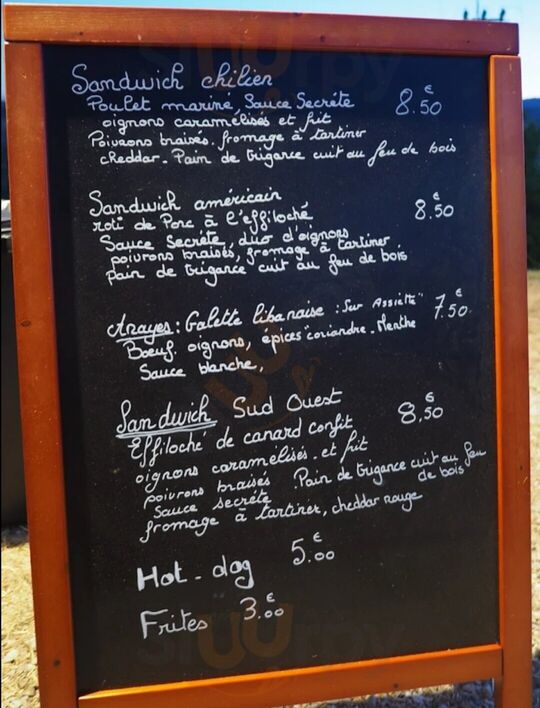 Sandwich chilien
Poulet marine, Sauce Secrète 8.50 €
oignons caramélisés et frit
Poivrons braisés. fromage à tartiner
cheddar. Pain de trigance cuit au feu de bois
Sandwich américain
roti de Porc à l'effiloché 8.50 €
Sauce Secrète, duo d'oignons
poivrons braisés, fromage à tartiner
pain de trigance cuit au feu de bois
Arayes : Galette libanaise : "Sur Assiette" 7.50 €
Bœuf. oignons, épices "coriandre. Menthe
Sauce blanche,
Sandwich Sud Ouest
Effiloché de canard confit 8,50 €
oignons caramélisés. et frit
poivrons braisés . Pain de trigance cuit au feu
de bois
Sauce secrète
fromage à tartiner, cheddar rouge
Hot-dog 5.00 €
Frites 3.00 €